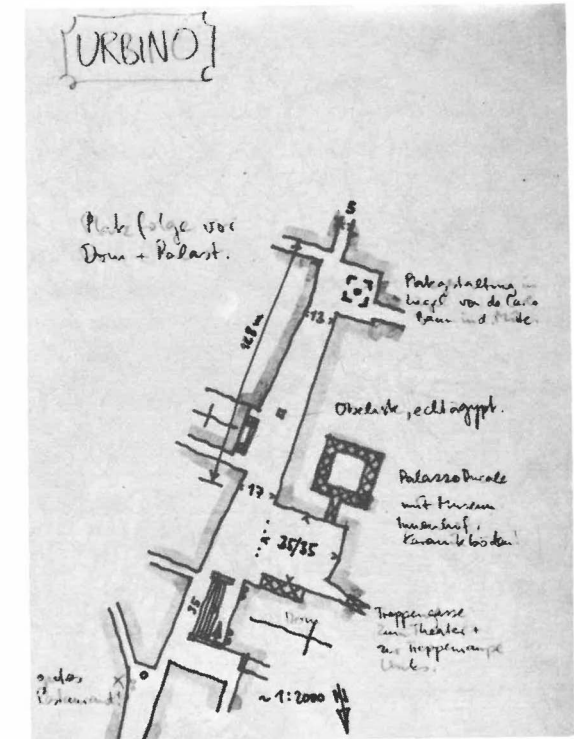 URBINO
Platzfolge vor
Dom + Palast.
5
Platzgestaltung in
13
128 m
Obeliske, echt ägypt.
Palazzo Ducale
mit Museum
Innenhof,
Keramikböden!
17
35/35
35
Dom
Treppengasse
zum Theater +
zur Treppenrampe
links.
gutes
Restaurant!
~ 1:2000 N